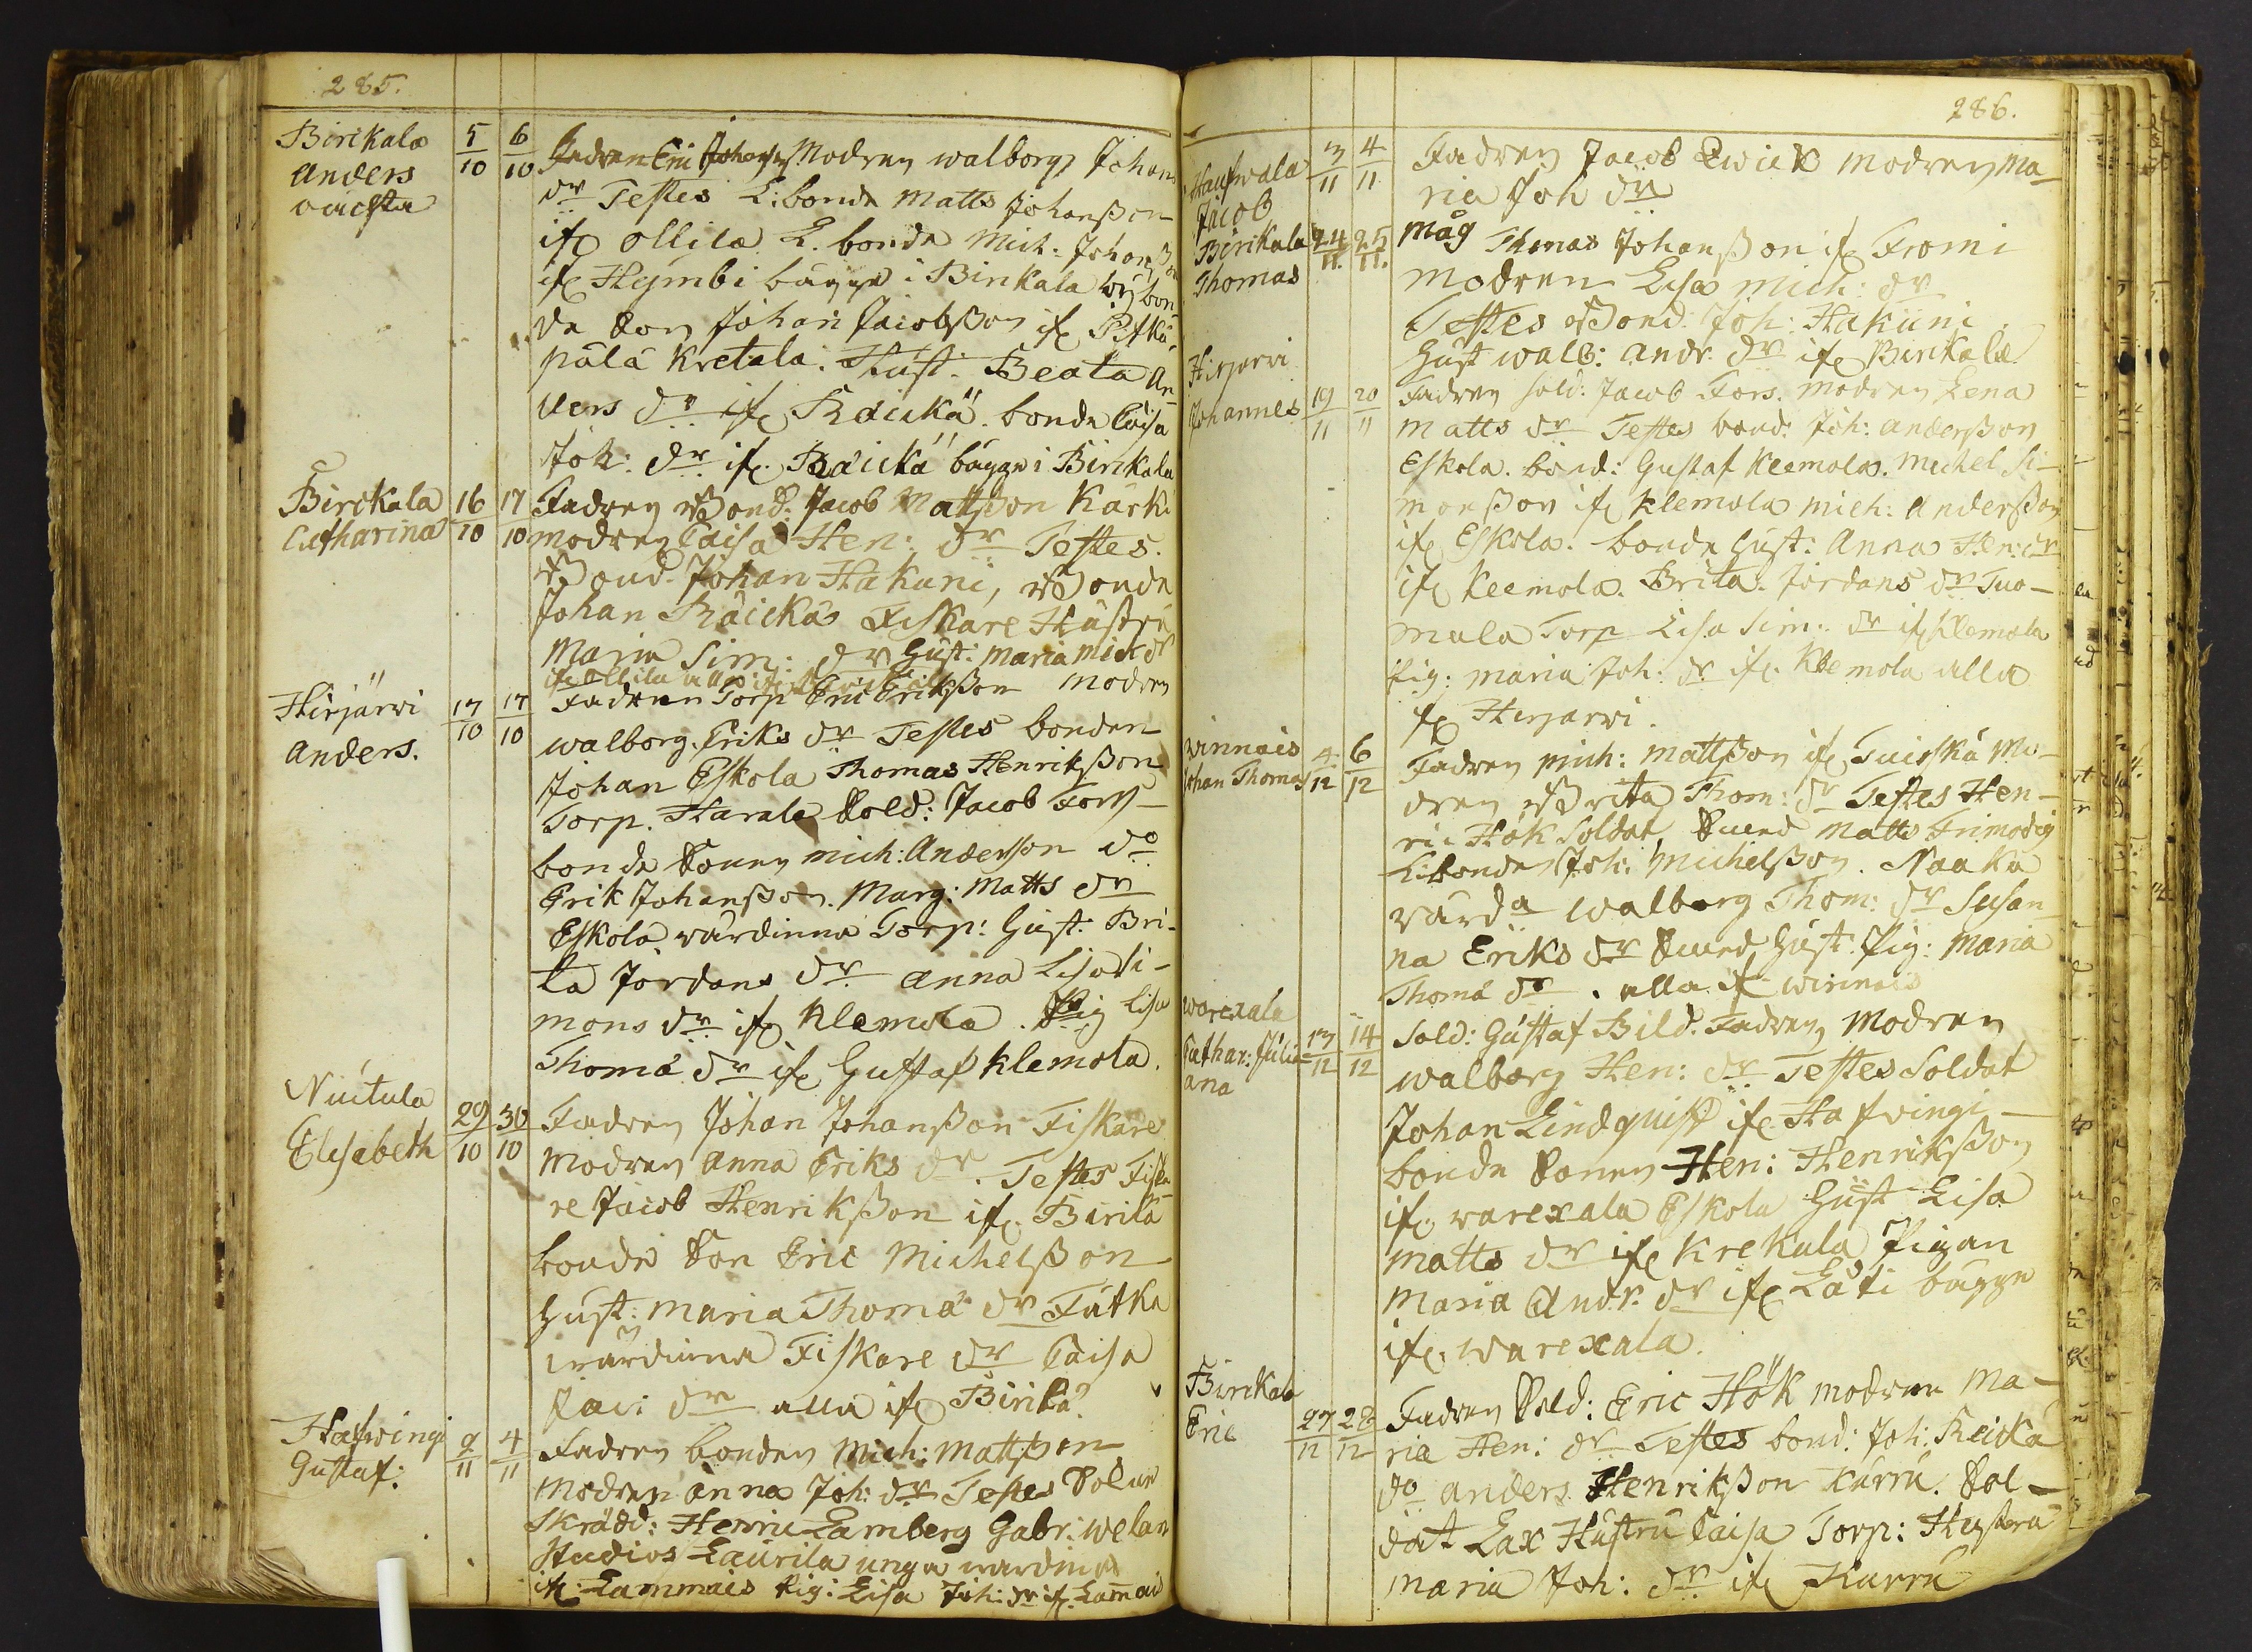 285.
Birckala 5/10 6/10 Fadren Eric Johanss Modren walborg Johans
Anders dr Testes L: bonde Matts Johansson
oächta ifr Ollila L. bonde Mich: Johansson
ifr Heimbi bägge i Birckala by bon
de Son Johan Jacobsson ifr Pitkä
pälä Kretala. Hust: Beata An-
ders dr ifr Räickä. bonde Caisa
Joh: dr ifr Räickä bägge i Birckala
Birckala 16/10 17/10 Fadren Bond: Jacob Mattsson Karki
Catharina modren Caisa Hen: dr Testes.
Bond. Johan Hakuni, Bonde
Johan Räickä Fiskare Hustru
Maria Sim: dr Hust: Maria Mich dr
ifr Ollila alla ifr Birckala
Hirjärvi 17/10 17/10 Fadren Torp Eric Eriksson modren
Anders. walborg Eriks dr Testes bonden
Johan Eskola Thomas Henriksson
Torp. Harala Sold: Jacob Fors
bonde Sonen mich: Andersson do
Erik Johansson. Marg: Matts dr
Eskola wärdinna Torp: Hust: Bri-
ta Jordans dr Anna Lisa Si-
mons dr ifr Klemola. Pig Lisa
Thomä dr ifr Gustaf Klemola.
Nuutula 29/10 30/10 Fadren Johan Johansson Fiskare
Elisabeth Modren Anna Eriks dr. Testes Fiska
re Jacob Henriksson ifr Birilä
bonde Son Eric Michelsson
Hust: Maria Thomä dr Tutka
wärdinna Fiskare dr Caisa
Jac: dr alla ifr Birila
Hafvingi 2/11 4/11 Fadren bonden Mich: Mattsson
Gustaf: Modren Anna Joh: dr Testes
Skrädd: Henric Lamberg Gabr: Welan
Studios Laurila unga wärdinna
ifr Lammais Pig: Lisa Joh: dr ifr Lammais
286.
Haufwala 3/11 4/11 Fadren Jacob Qwick modren Ma-
Jacob ria Joh dr
Birckala 24/11. 25/11. måg Thomas Johansson ifr Fromi
Thomas modren Lisa Mich: dr
Testes Bond: Joh: Hakuni
Hust walb: Andr: dr ifr Birckala
Hirjarvi Fadren Sold: Jacob Fors. modren Lena
Johannes 19/11 20/11 Matts dr Testes bond: Joh: Andersson
Eskola. bond: Gustaf Klemola. Michel Si-
monsson ifr Klemola Mich: Andersson
ifr Eskola. bonde Hust: Anna Hen: dr
ifr Klemola. Brita Jordans dr Tuo-
mala Torp Lisa Sim: dr ifr Klemola
Pig: Maria Joh: dr ifr Klemola alla
fr Hirjarvi.
Winnais 4/12 6/12 Fadren Mich: Mattsson ifr Tuiskä Mo-
Johan Thomas dren Brita Thom: dr Testes Hen-
ric Hök Soldat, Smed Matts Frimodig
L: bonden Joh: Michelsson. Naaka
värda Walborg Thom: dr Susan
na Eriks dr Smed Hust. Pig: Maria
Thomä dr. alla ifr Winnais
Warexala 13/12 14/12 Sold: Gustaf Bild. Fadren, Modren
Cathar: Juli- walborg Hen: dr Testes Soldat
ana Johan Lindquist ifr Hafvingi
bonde Sonen Hen: Henriksson
ifr warexala Eskola Hust Lisa
Matts dr ifr Krekula Pigan
Maria Andr: dr ifr Läti bägge
ifr. warexala.
Birckala 27/12 28/12 Fadren Sold: Eric Hök modren Ma-
Eric ria Hen: dr Testes bond: Joh: Reickä
do Anders Henriksson Kurru. Sol-
dat Lax Hustru Caisa Torp: Hustru
Maria Joh: dr ifr Kurru